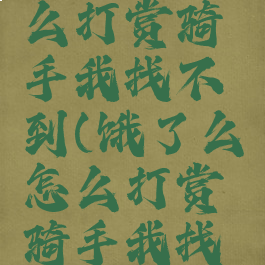 么打赏骑
手我找不
到(饿了么
怎么打赏
骑手我找